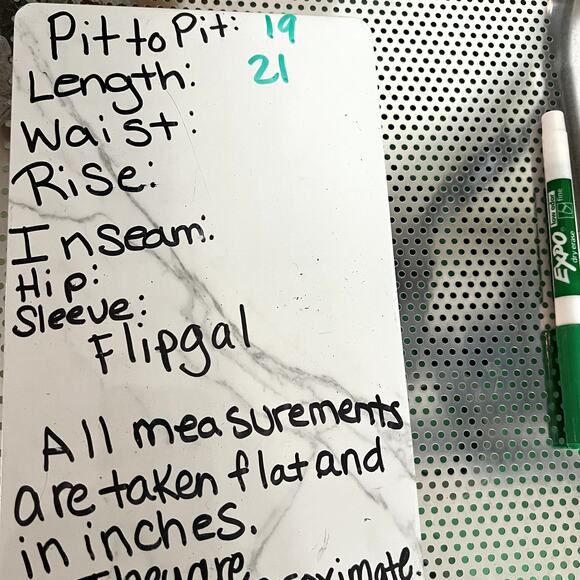 Pit to Pit: 19
Length: 21
Waist:
Rise:
Inseam:
Hip:
Sleeve:
Flipgal
All measurements
are taken flat and
in inches.
They are
EXPO
dry erase
low odor
fine